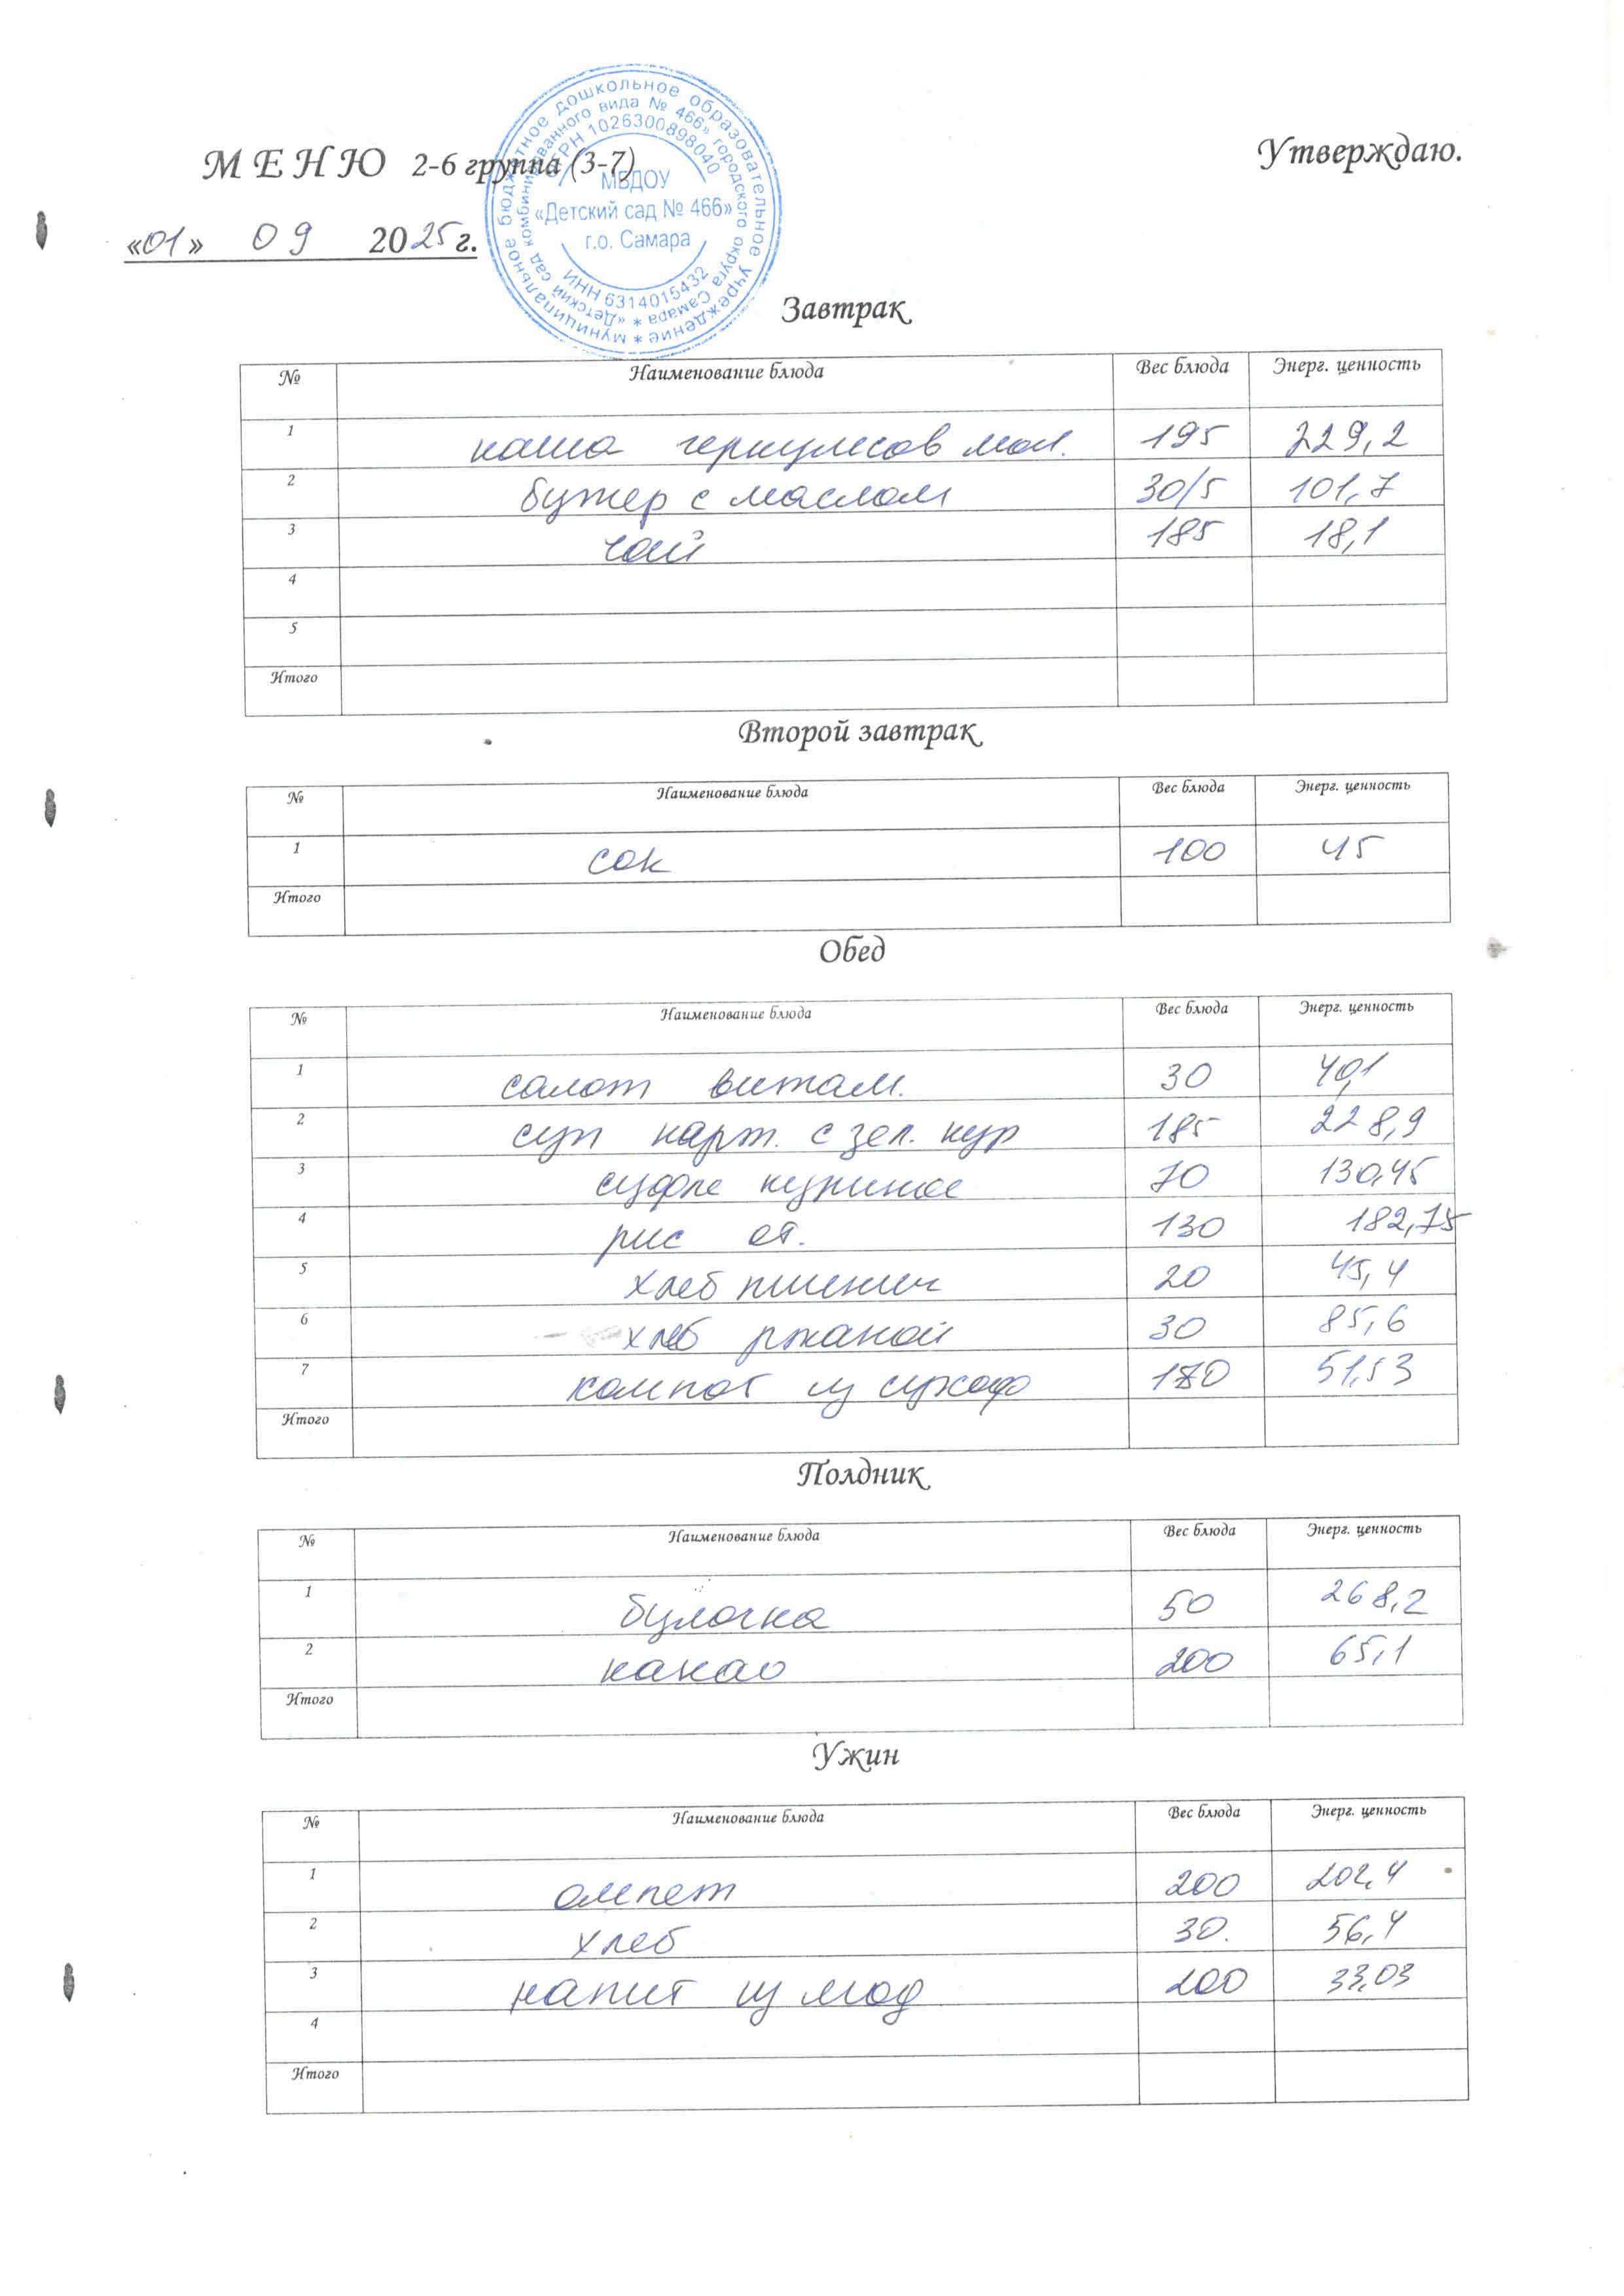 МЕНЮ 2-6 группа (3-7)
Утверждаю.
«01» 09 2025 г.
муниципальное бюджетное дошкольное образовательное учреждение *
«Детский сад комбинированного вида № 466» городского округа Самара *
ОГРН 1026300898040
МБДОУ
«Детский сад № 466»
г.о. Самара
ИНН 6314015432
Завтрак
№ Наименование блюда Вес блюда Энерг. ценность
1 каша геркулесов мол. 195 229,2
2 бутер с маслом 30/5 101,7
3 чай 185 18,1
4
5
Итого
Второй завтрак
№ Наименование блюда Вес блюда Энерг. ценность
1 сок 100 45
Итого
Обед
№ Наименование блюда Вес блюда Энерг. ценность
1 салат витам. 30 40,1
2 суп карт. с зел. кур 185 228,9
3 суфле куриное 70 130,45
4 рис от. 130 182,75
5 хлеб пшенич 20 45,4
6 хлеб ржаной 30 85,6
7 компот из сухоф 51,53
Итого
Полдник
№ Наименование блюда Вес блюда Энерг. ценность
1 булочка 50 268,2
2 какао 200 65,1
Итого
Ужин
№ Наименование блюда Вес блюда Энерг. ценность
1 омлет 200 202,4
2 хлеб 30. 56,4
3 напит из мод 200 33,03
4
Итого